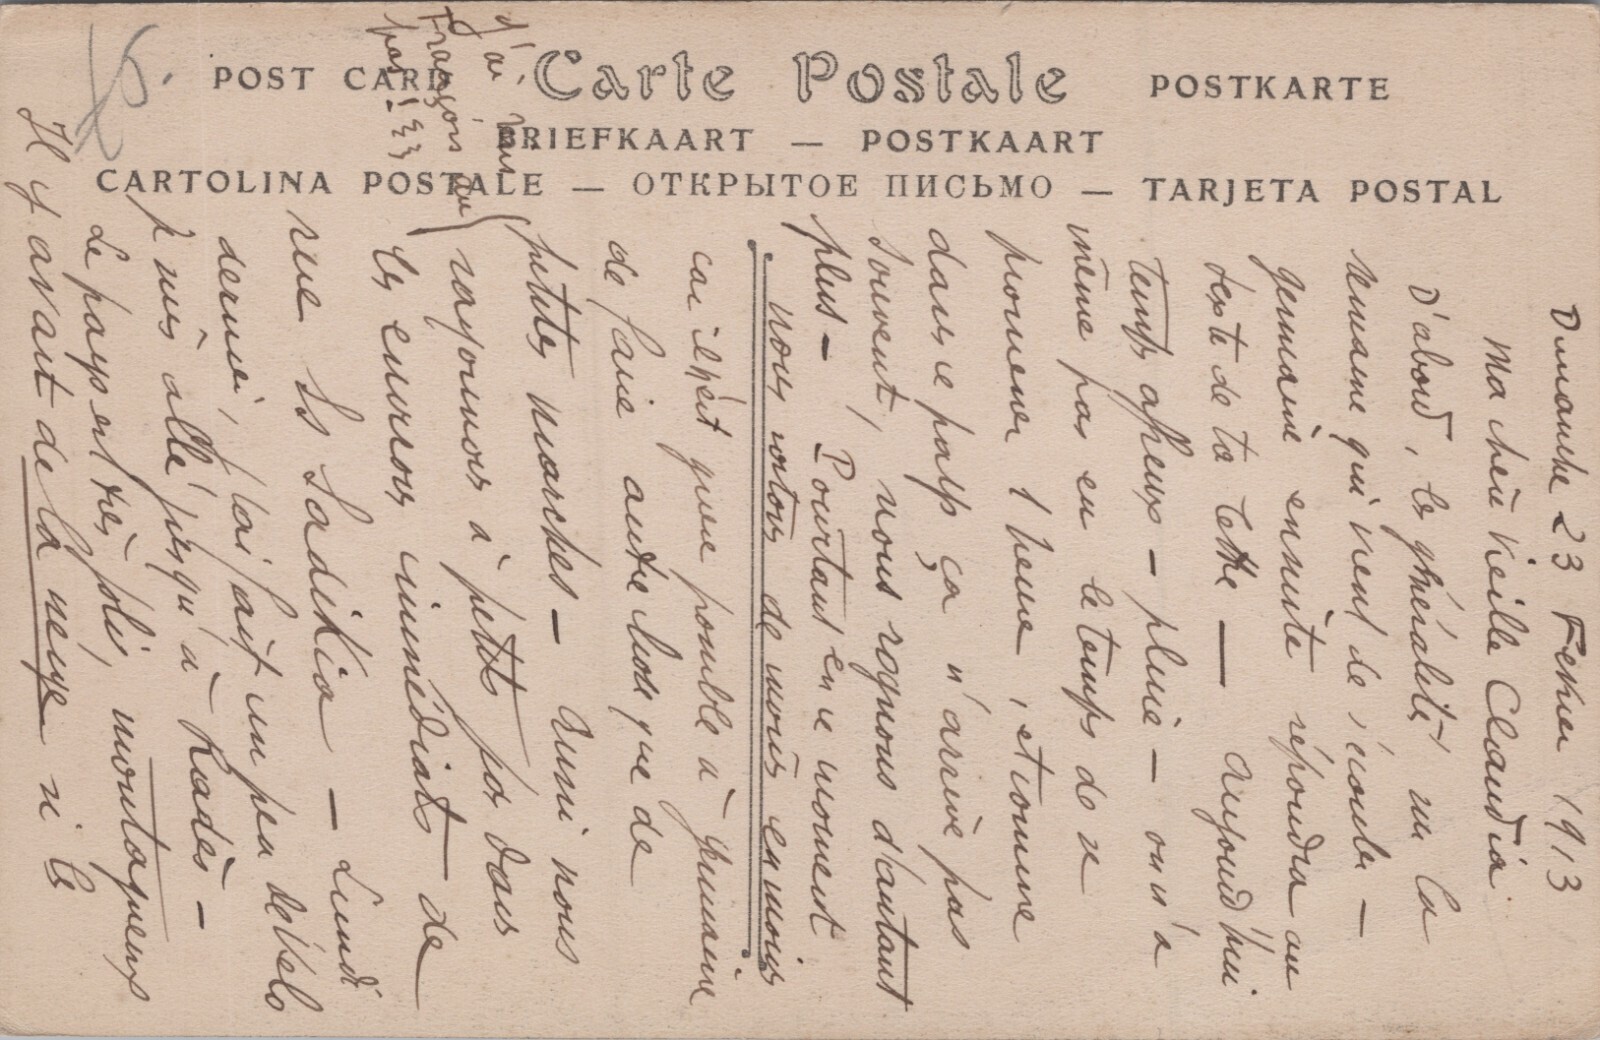 POST CARD Carte Postale POSTKARTE
BRIEFKAART — POSTKAART
CARTOLINA POSTALE — ОТКРЫТОЕ ПИСЬМО — TARJETA POSTAL
Dimanche 23 Fevrier 1913
Ma chère vieille Claudia.
D'abord, les généralités sur la
semaine qui vient de s'écouler —
Germaine ensuite répondra au
texte de ta lettre — Aujourd'hui
temps affreux — pluie — on n'a
même pas eu le temps de se
promener 1 heure, et comme
dans ce pays ça n'arrive pas
souvent, nous rognons d'autant
plus — Pourtant en ce moment
nous sortons de moins en moins
car il est pénible à Germaine
de faire autre chose que de
petites marches — Aussi nous
rayonnons à petits pas dans
les environs immédiats de
rue Es Sadikia — Lundi
dernier, j'ai fait un peu de vélo
je suis allé jusqu'à Radès —
Le pays est très joli, montagneux
Il y avait de la neige si les
J'ai
Français
pas 1